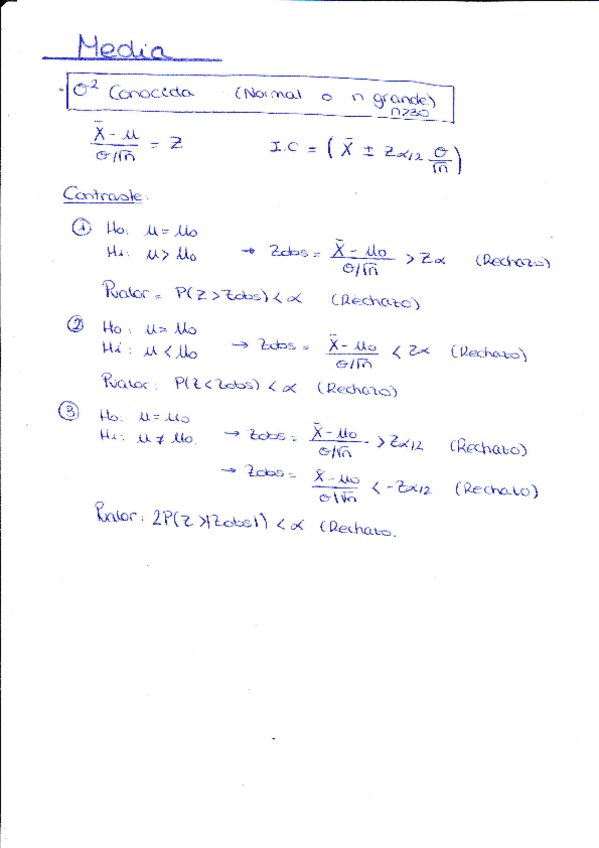 Media
σ² Conocida (Normal o n grande)
n≥30
(X̄ - μ)/(σ/√n) = Z I.C = (X̄ ± Zα/2 σ/√n)
Contraste:
① H0: μ = μ0
H1: μ > μ0 → Zobs = (X̄ - μ0)/(σ/√n) > Zα (Rechazo)
Pvalor = P(Z > Zobs) < α (Rechazo)
② H0: μ = μ0
H1: μ < μ0 → Zobs = (X̄ - μ0)/(σ/√n) < Zα (Rechazo)
Pvalor: P(Z < Zobs) < α (Rechazo)
③ H0: μ = μ0
H1: μ ≠ μ0. → Zobs = (X̄ - μ0)/(σ/√n) > Zα/2 (Rechazo)
→ Zobs = (X̄ - μ0)/(σ/√n) < -Zα/2 (Rechazo)
Pvalor: 2P(Z > |Zobs|) < α (Rechazo.